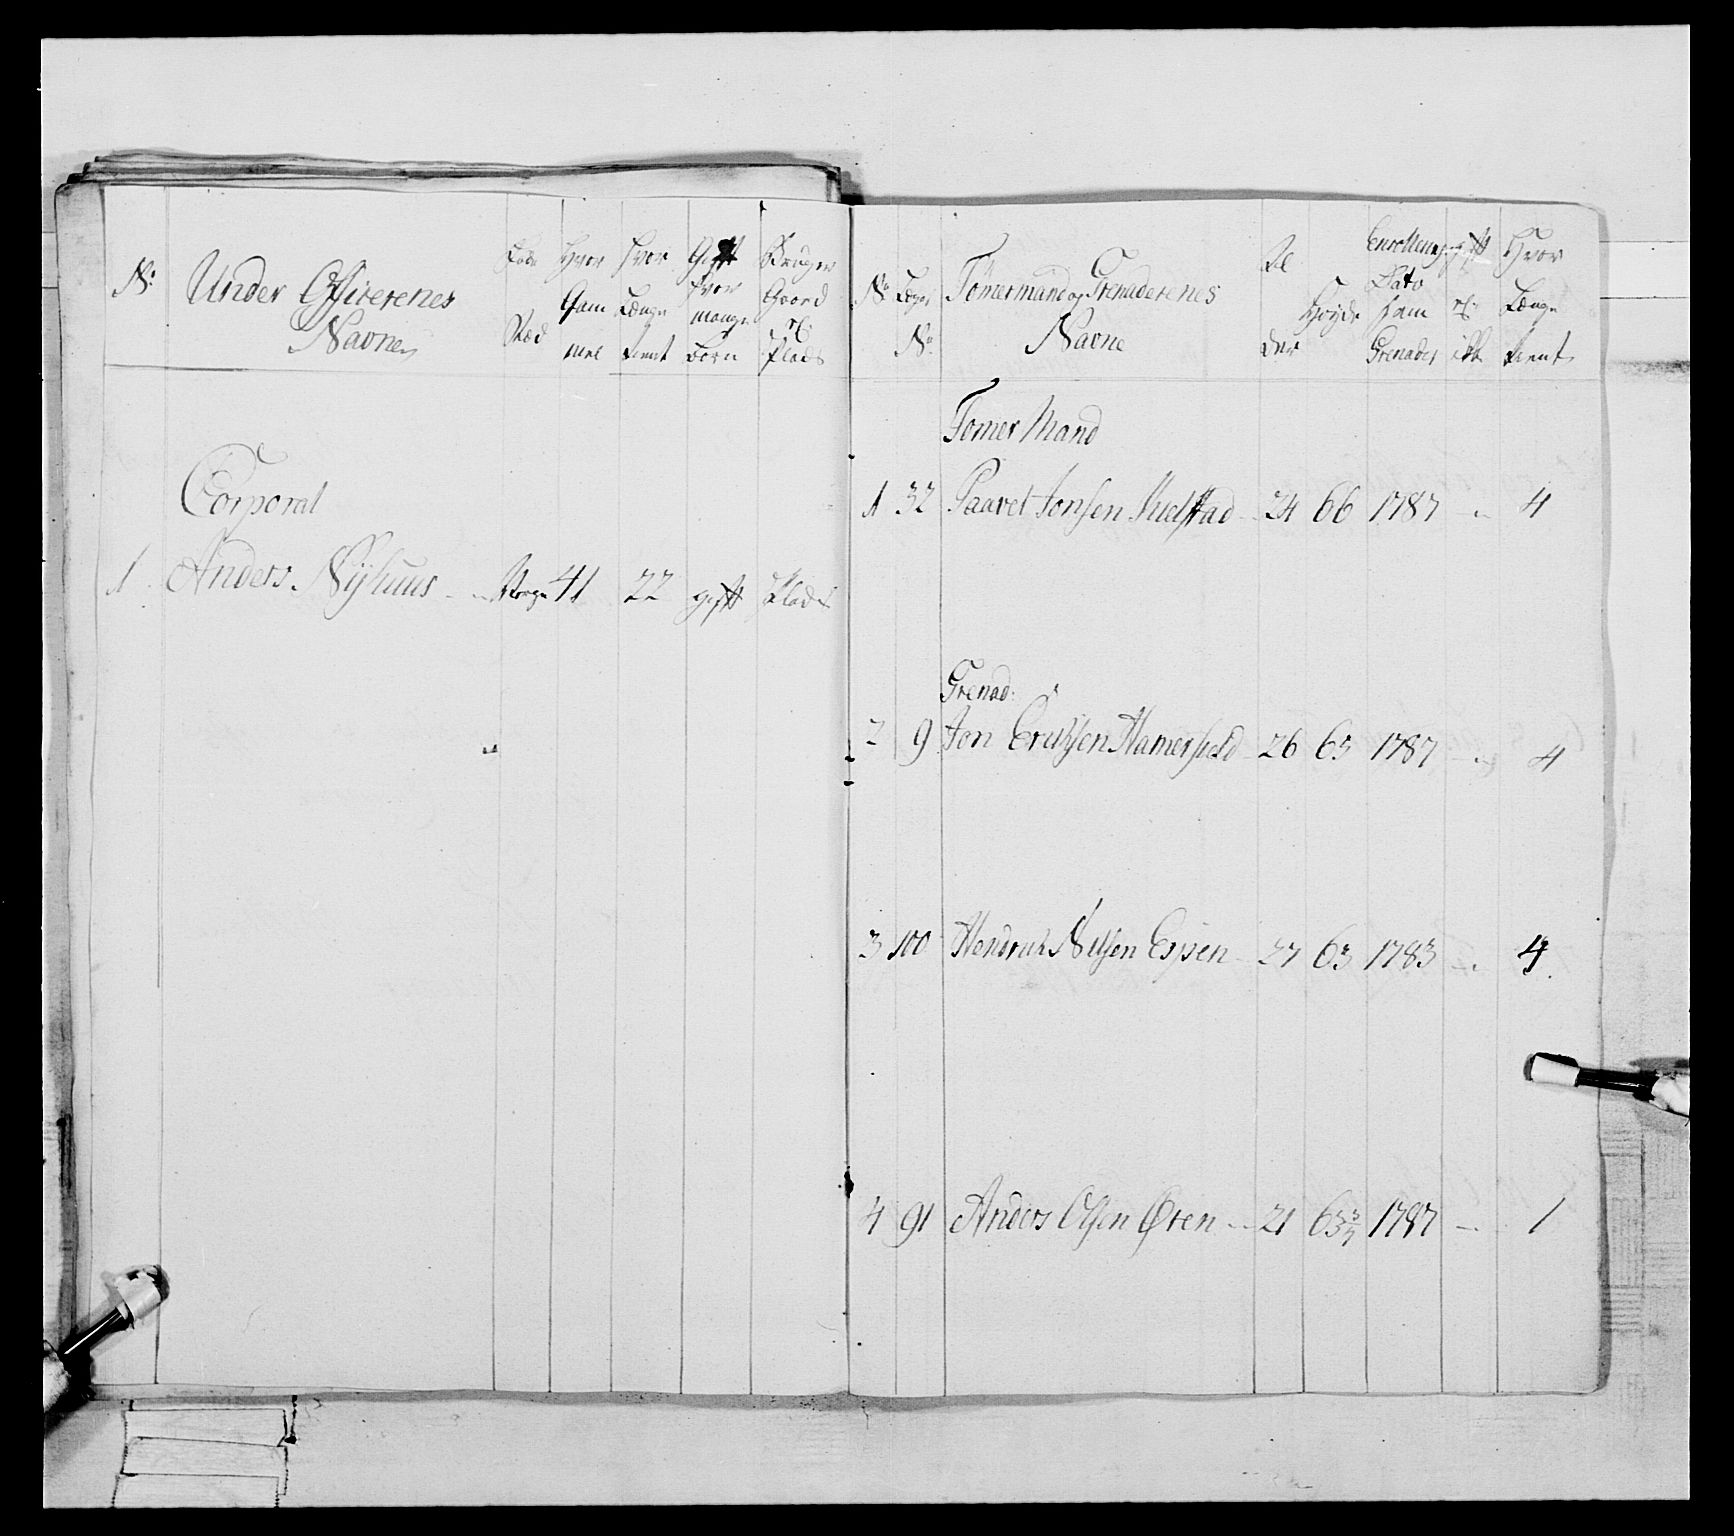 No
Under Officerenes
Navne
Føde
Stæd
Hvor
Gam
mel
Hvor
Længe
tient
Gift
hvor
mange
Børn
Bruger
Gaard
Plads
Corporal
1 Anders Nÿhuus Norge 41 22 gift Plads
No
Læges
No
Tømermand og Grenaderenes
Navne
Al
der
Høyde
Enrollerings
Dato
som
Grenader
gift
ikke
Hvor
Længe
tient
Tømer Mand
1 32 Paavel Jonsen 24 66 1787 4
Grenad:
2 9 Jon Eriksen 26 65 1787 4
3 100 Hendrich Nilsen Espen 27 63 1783 4
4 91 Anders Olsen Øren 21 63 1787 1